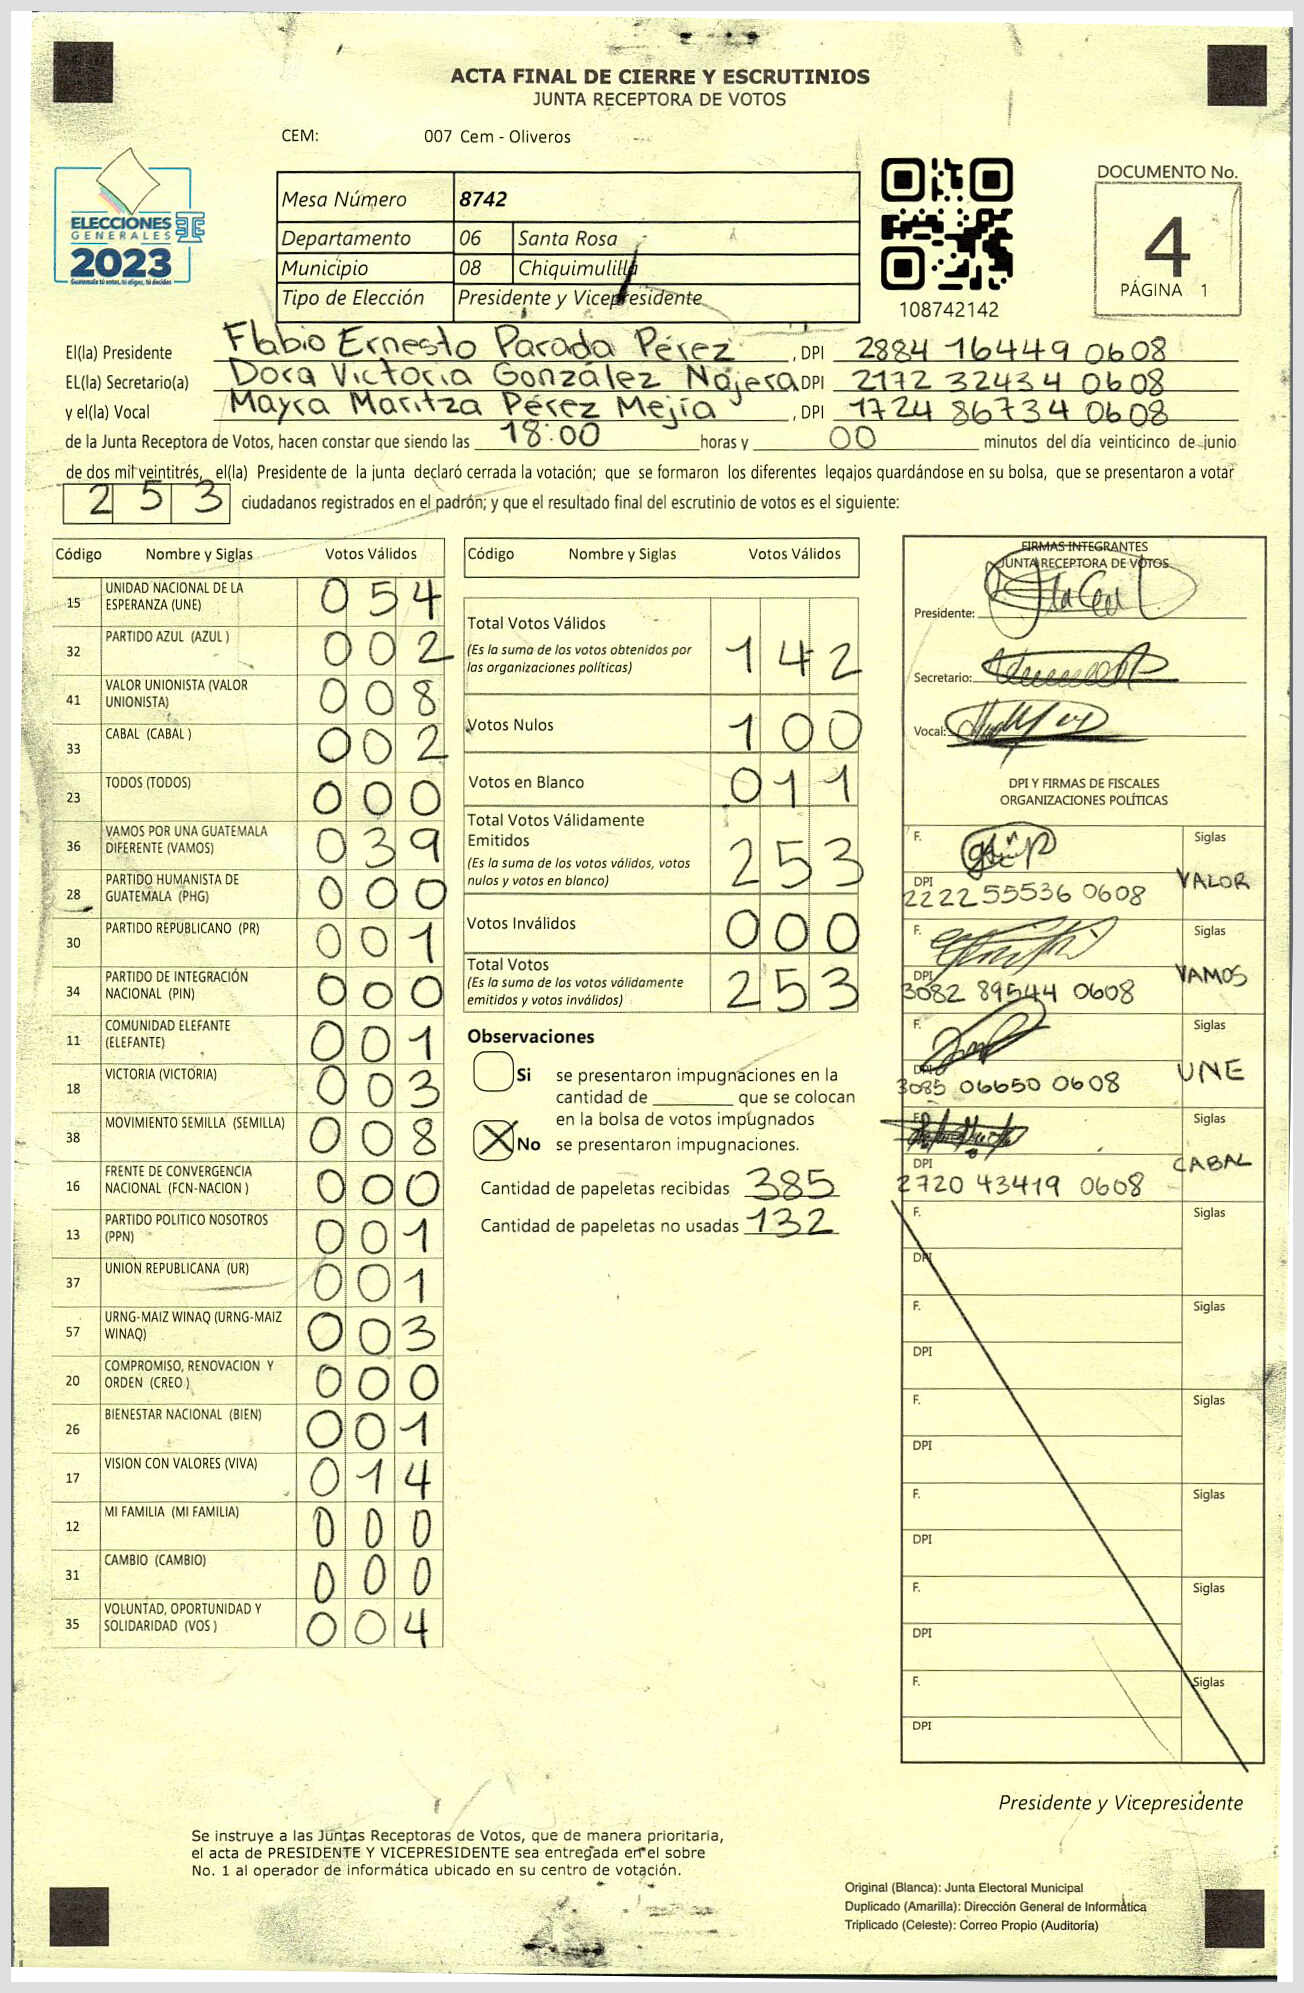 ACTA FINAL DE CIERRE Y ESCRUTINIOS
JUNTA RECEPTORA DE VOTOS
CEM: 007 Cem - Oliveros
ELECCIONES
GENERALES
2023
Guatemala tú votas, tú eliges, tú decides
Mesa Número 8742
Departamento 06 Santa Rosa
Municipio 08 Chiquimulilla
Tipo de Elección Presidente y Vicepresidente
108742142
DOCUMENTO No.
4
PÁGINA 1
El(la) Presidente Flabio Ernesto Parada Pérez , DPI 2884 16449 0608
EL(la) Secretario(a) Dora Victoria González Najera DPI 2172 32434 0608
y el(la) Vocal Mayra Maritza Pérez Mejía , DPI 1724 86734 0608
de la Junta Receptora de Votos, hacen constar que siendo las 18:00 horas y 00 minutos del día veinticinco de junio
de dos mil veintitrés, el(la) Presidente de la junta declaró cerrada la votación; que se formaron los diferentes legajos guardándose en su bolsa, que se presentaron a votar
253 ciudadanos registrados en el padrón; y que el resultado final del escrutinio de votos es el siguiente:
Código Nombre y Siglas Votos Válidos
15 UNIDAD NACIONAL DE LA ESPERANZA (UNE) 054
32 PARTIDO AZUL (AZUL ) 002
41 VALOR UNIONISTA (VALOR UNIONISTA) 008
33 CABAL (CABAL ) 002
23 TODOS (TODOS) 000
36 VAMOS POR UNA GUATEMALA DIFERENTE (VAMOS) 039
28 PARTIDO HUMANISTA DE GUATEMALA (PHG) 000
30 PARTIDO REPUBLICANO (PR) 001
34 PARTIDO DE INTEGRACIÓN NACIONAL (PIN) 000
11 COMUNIDAD ELEFANTE (ELEFANTE) 001
18 VICTORIA (VICTORIA) 003
38 MOVIMIENTO SEMILLA (SEMILLA) 008
16 FRENTE DE CONVERGENCIA NACIONAL (FCN-NACION ) 000
13 PARTIDO POLITICO NOSOTROS (PPN) 001
37 UNION REPUBLICANA (UR) 001
57 URNG-MAIZ WINAQ (URNG-MAIZ WINAQ) 003
20 COMPROMISO, RENOVACION Y ORDEN (CREO ) 000
26 BIENESTAR NACIONAL (BIEN) 001
17 VISION CON VALORES (VIVA) 014
12 MI FAMILIA (MI FAMILIA) 000
31 CAMBIO (CAMBIO) 000
35 VOLUNTAD, OPORTUNIDAD Y SOLIDARIDAD (VOS ) 004
Código Nombre y Siglas Votos Válidos
Total Votos Válidos 142
(Es la suma de los votos obtenidos por
las organizaciones políticas)
Votos Nulos 100
Votos en Blanco 011
Total Votos Válidamente
Emitidos 253
(Es la suma de los votos válidos, votos
nulos y votos en blanco)
Votos Inválidos 000
Total Votos 253
(Es la suma de los votos válidamente
emitidos y votos inválidos)
Observaciones
Si se presentaron impugnaciones en la
cantidad de ________ que se colocan
en la bolsa de votos impugnados
X No se presentaron impugnaciones.
Cantidad de papeletas recibidas 385
Cantidad de papeletas no usadas 132
FIRMAS INTEGRANTES
JUNTA RECEPTORA DE VOTOS
Presidente:
Secretario:
Vocal:
DPI Y FIRMAS DE FISCALES
ORGANIZACIONES POLÍTICAS
F. Siglas
DPI 2222 55536 0608 VALOR
F. Siglas
DPI 3082 89544 0608 VAMOS
F. Siglas
DPI 3085 06650 0608 UNE
F. Siglas
DPI 2720 43419 0608 CABAL
F. Siglas
DPI
F. Siglas
DPI
F. Siglas
DPI
F. Siglas
DPI
F. Siglas
DPI
F. Siglas
DPI
Presidente y Vicepresidente
Se instruye a las Juntas Receptoras de Votos, que de manera prioritaria,
el acta de PRESIDENTE Y VICEPRESIDENTE sea entregada en el sobre
No. 1 al operador de informática ubicado en su centro de votación.
Original (Blanca): Junta Electoral Municipal
Duplicado (Amarilla): Dirección General de Informática
Triplicado (Celeste): Correo Propio (Auditoría)